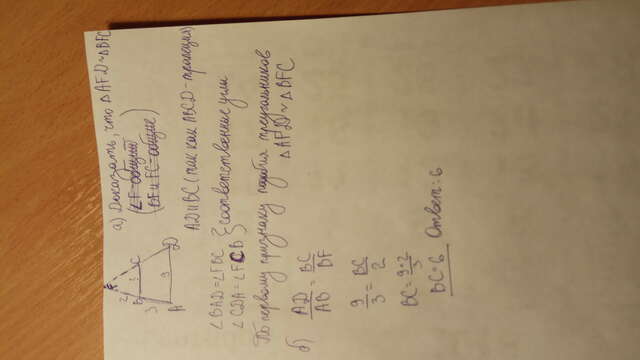 а) Доказать, что △AFD ~ △BFC
(∠F-общий
BF и FC-общие)
AD || BC (так как ABCD-трапеция)
∠BAD = ∠FBC } соответственные углы
∠CDA = ∠FCB
По первому признаку подобия треугольников
△AFD ~ △BFC
б) AD/AB = BC/BF
9/3 = BC/2
BC = 9·2/3
BC = 6 Ответ: 6
F
2
B
C
3
A
9
D